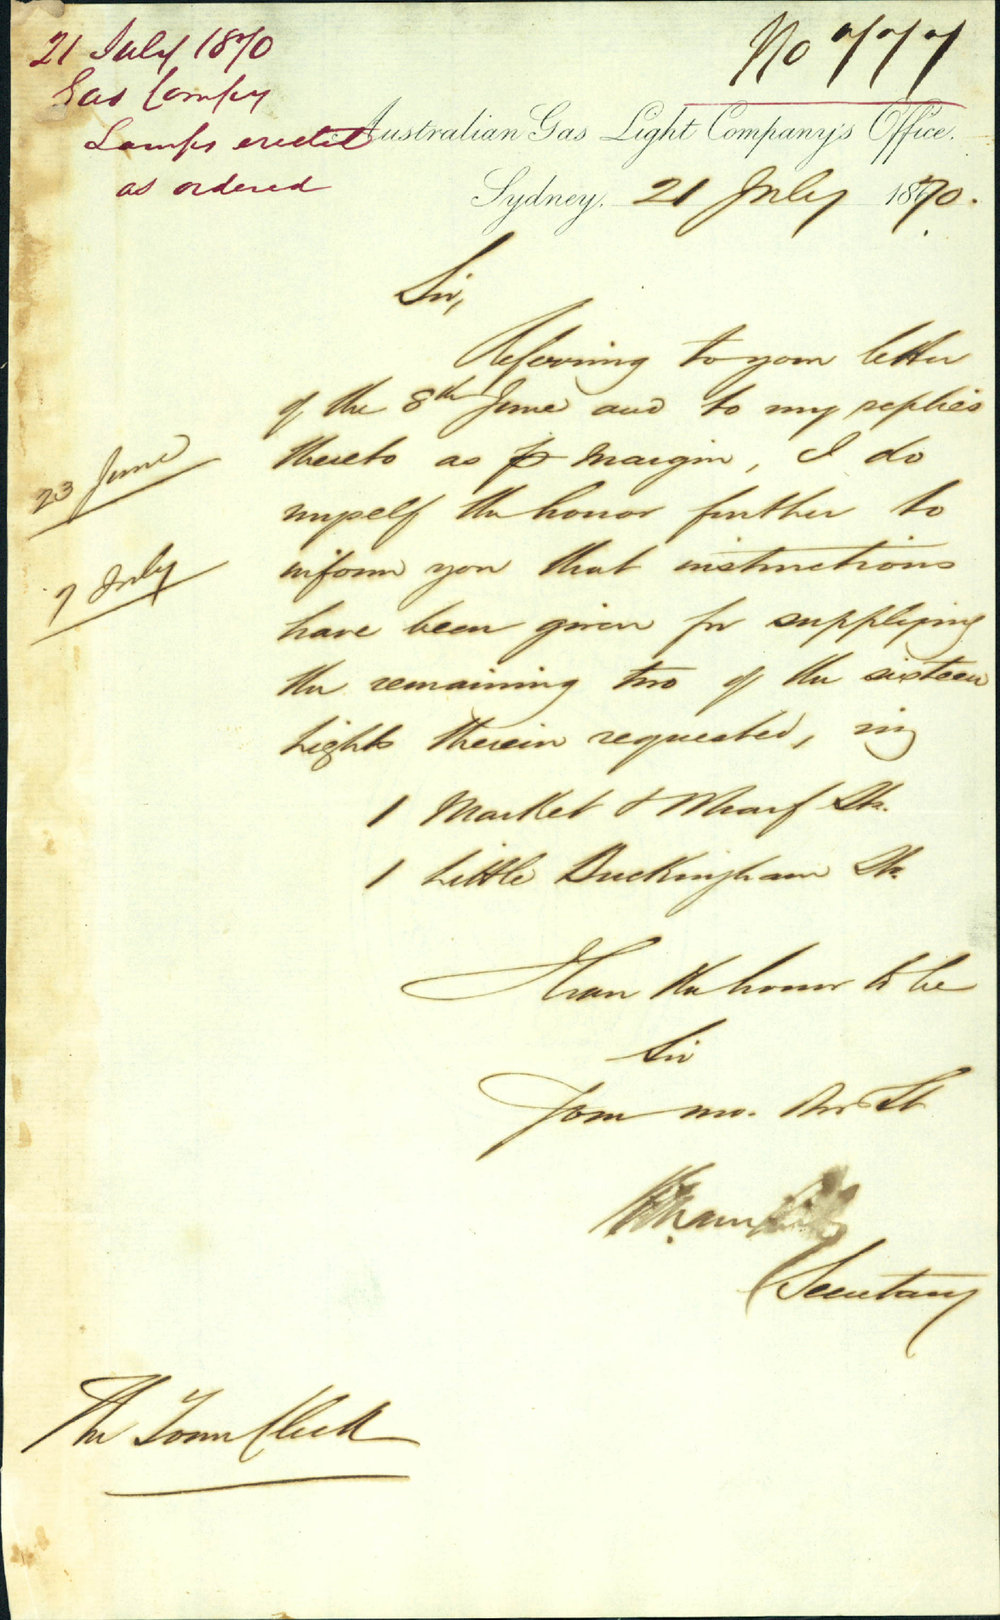 21 July 1870
Gas Compy
Lamps erected
as ordered
No 777
Australian Gas Light Company's Office.
Sydney. 21 July 1870.
Sir,
Referring to your letter
of the 8th June and to my replies
thereto as p Margin, I do
23 June
myself the honor further to
7 July
inform you that instructions
have been given for supplying
the remaining two of the sixteen
lights therein requested, viz
1 Market & Wharf Sts.
1 Little Buckingham St.
I have the honor to be
Sir
Your mo. Ob St
Secretary
The Town Clerk